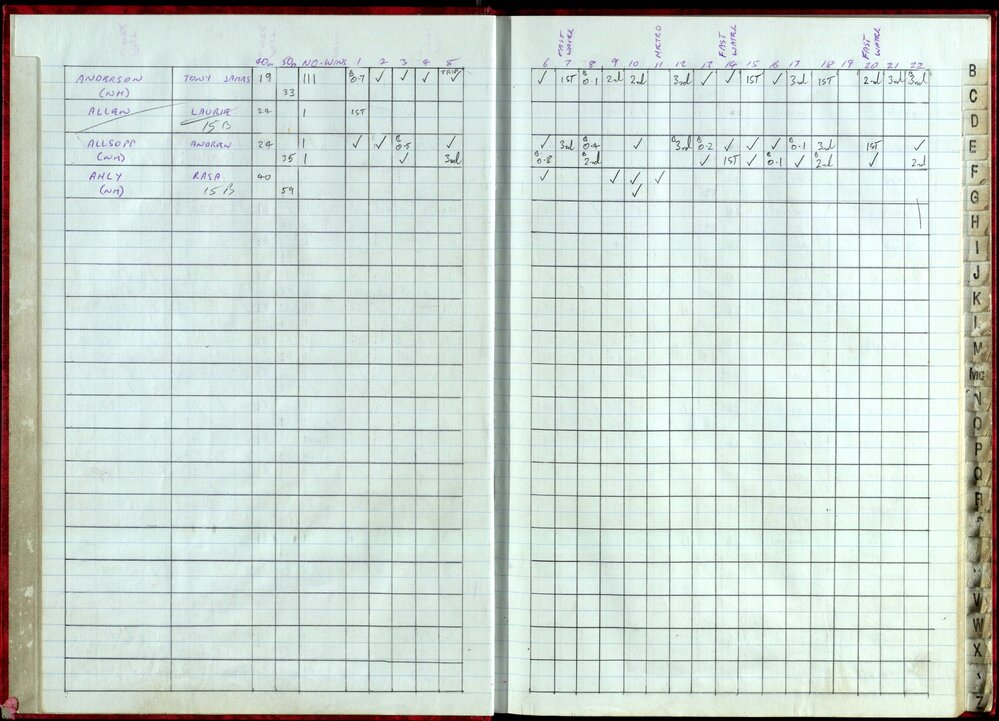 FAST WATER METRO FAST WATER FAST WATER
40m 50m NO-WINS 1 2 3 4 5 6 7 8 9 10 11 12 13 14 15 16 17 18 19 20 21 22
ANDERSON TONY JAMES 19 III B 0.7 ✓ ✓ ✓ TRIP ✓ ✓ 1ST B 0.1 2nd 2nd 3rd ✓ ✓ 1ST ✓ 3rd 1ST 2nd 3rd 3rd
(NM) 33
ALLEN LAURIE 24 1 1ST
15 B
ALLSOPP ANDREW 24 1 ✓ ✓ B 0.5 ✓ ✓ 3rd B 0.4 ✓ B 3rd B 0.2 ✓ ✓ ✓ B 0.1 3rd 1ST ✓
(NM) 35 1 ✓ 3rd B 0.8 B 2nd ✓ 1ST ✓ B 0.1 ✓ B 2nd ✓ 2nd
AHLY RASA 40 ✓ ✓ ✓ ✓
(NM) 15 B 59 ✓
B
C
D
E
F
G
H
I
J
K
L
M
Mc
N
O
P
Q
R
V
W
X
Z